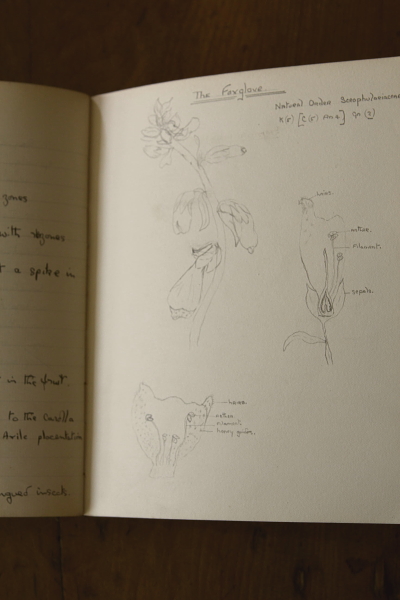 with
a spike in
in the fruit.
to the
Axile placentation
tongued insects.
The Foxglove.
Natural Order Scrophulariaceae
K(5) [C(5) A4] G(2)
anther.
filament.
sepals.
hairs.
anther.
filament.
honey guides.